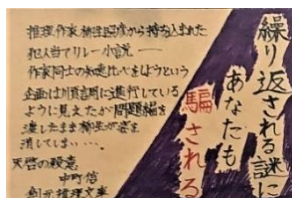 繰り返される謎に
あなたも
騙される
推理作家柳生照彦から持ち込まれた
犯人当てリレー小説――
作家同士の知恵比べをしようという
企画は順調に進行している
ように見えたが問題編を
渡したまま柳生が姿を
消してしまい‥‥。
天啓の殺意
中町信
創元推理文庫